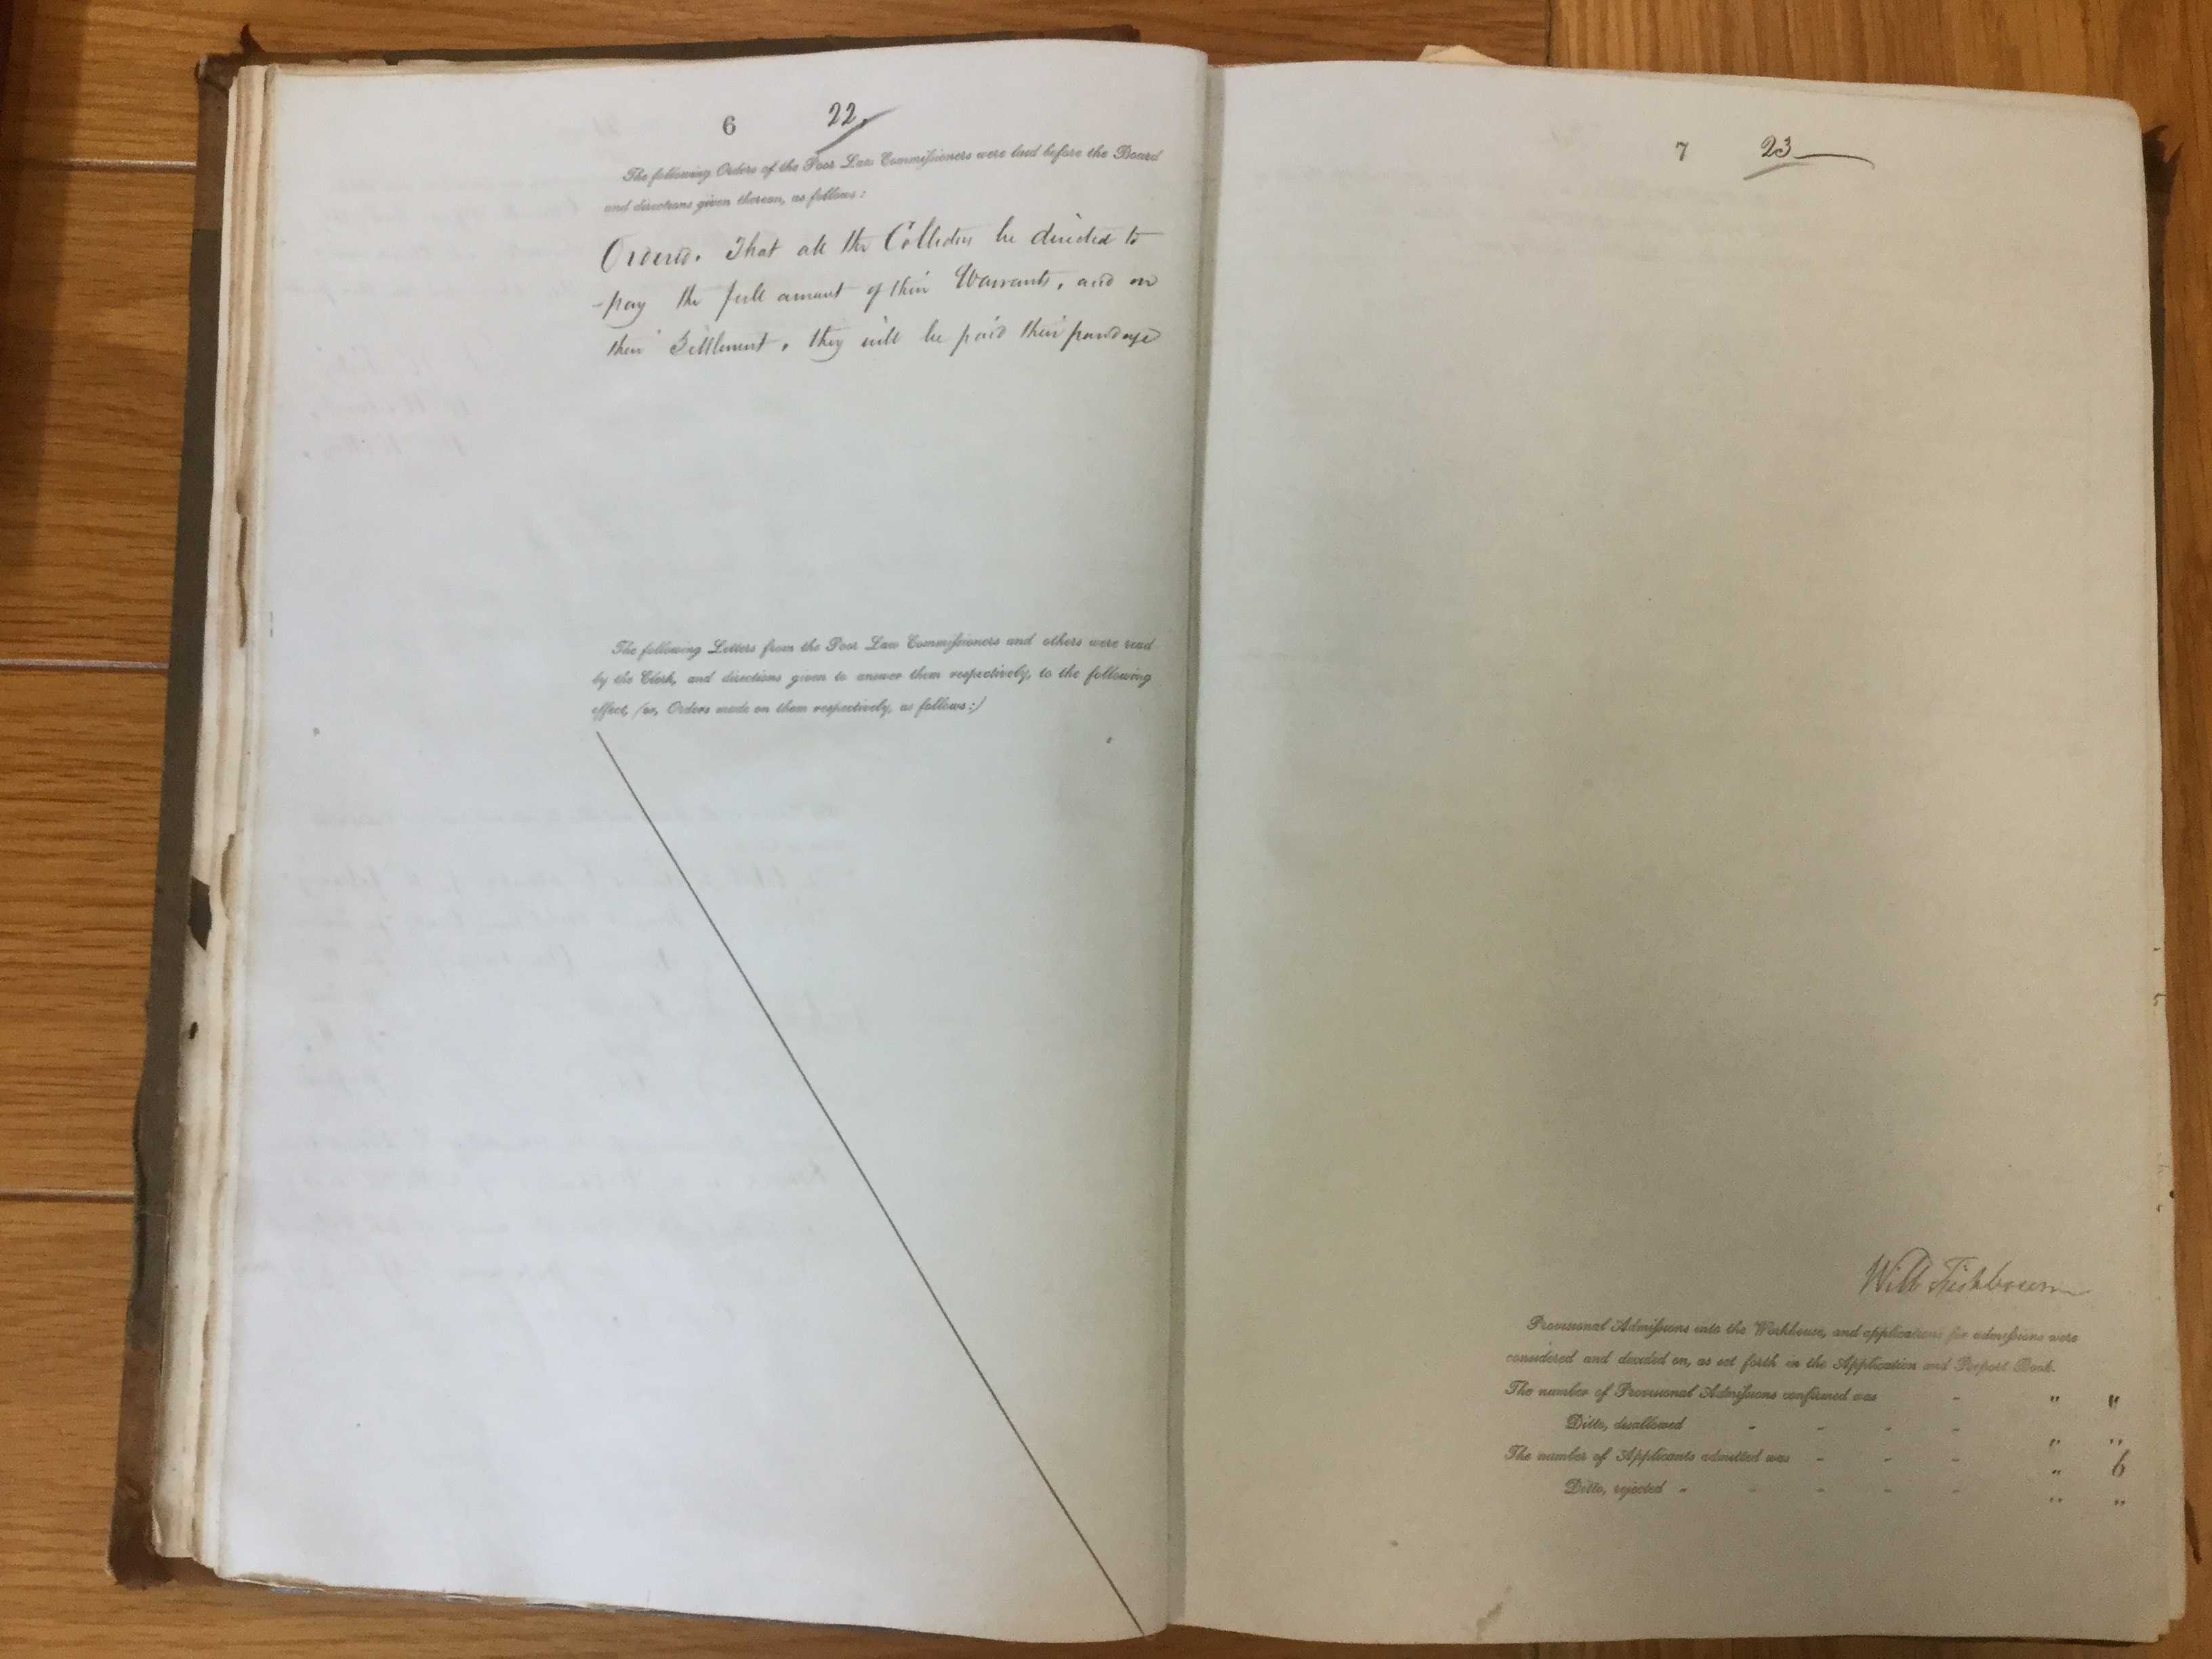 6 22.
The following Orders of the Poor Law Commissioners were laid before the Board
and directions given thereon, as follows:
Ordered. That all the Collectors be directed to
pay the full amount of their Warrants, and on
their Settlement, they will be paid their poundage
The following Letters from the Poor Law Commissioners and others were read
by the Clerk, and directions given to answer them respectively, to the following
effect, (or, Orders made on them respectively, as follows:)
7 23
Will Fishbourne
Provisional Admissions into the Workhouse, and applications for admissions were
considered and decided on, as set forth in the Application and Report Book.
The number of Provisional Admissions confirmed was - " "
Ditto, disallowed - - - - " "
The number of Applicants admitted was - - - " 6
Ditto, rejected - - - - - " "